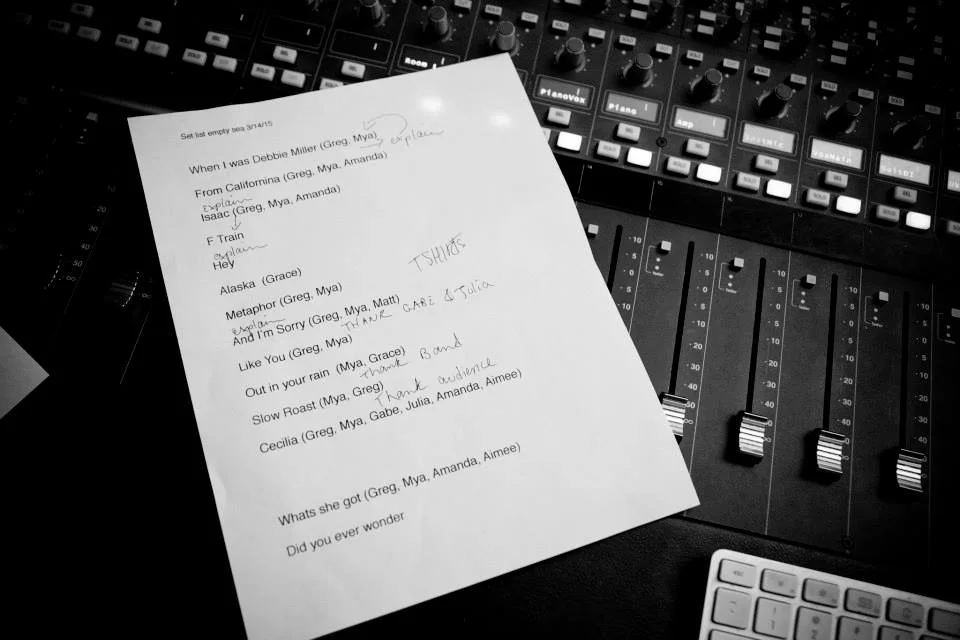 Set list empty sea 3/14/15
When I was Debbie Miller (Greg, Mya)
explain
From Californina (Greg, Mya, Amanda)
explain
Isaac (Greg, Mya, Amanda)
F Train
explain
Hey
Alaska (Grace)
TSHIRTS
Metaphor (Greg, Mya)
explain
And I'm Sorry (Greg, Mya, Matt)
THANK GABE & Julia
Like You (Greg, Mya)
Out in your rain (Mya, Grace)
Thank Band
Slow Roast (Mya, Greg)
Thank audience
Cecilia (Greg, Mya, Gabe, Julia, Amanda, Aimee)
Whats she got (Greg, Mya, Amanda, Aimee)
Did you ever wonder
Room 1
PianoVox
Piano
Amp
VoxMain